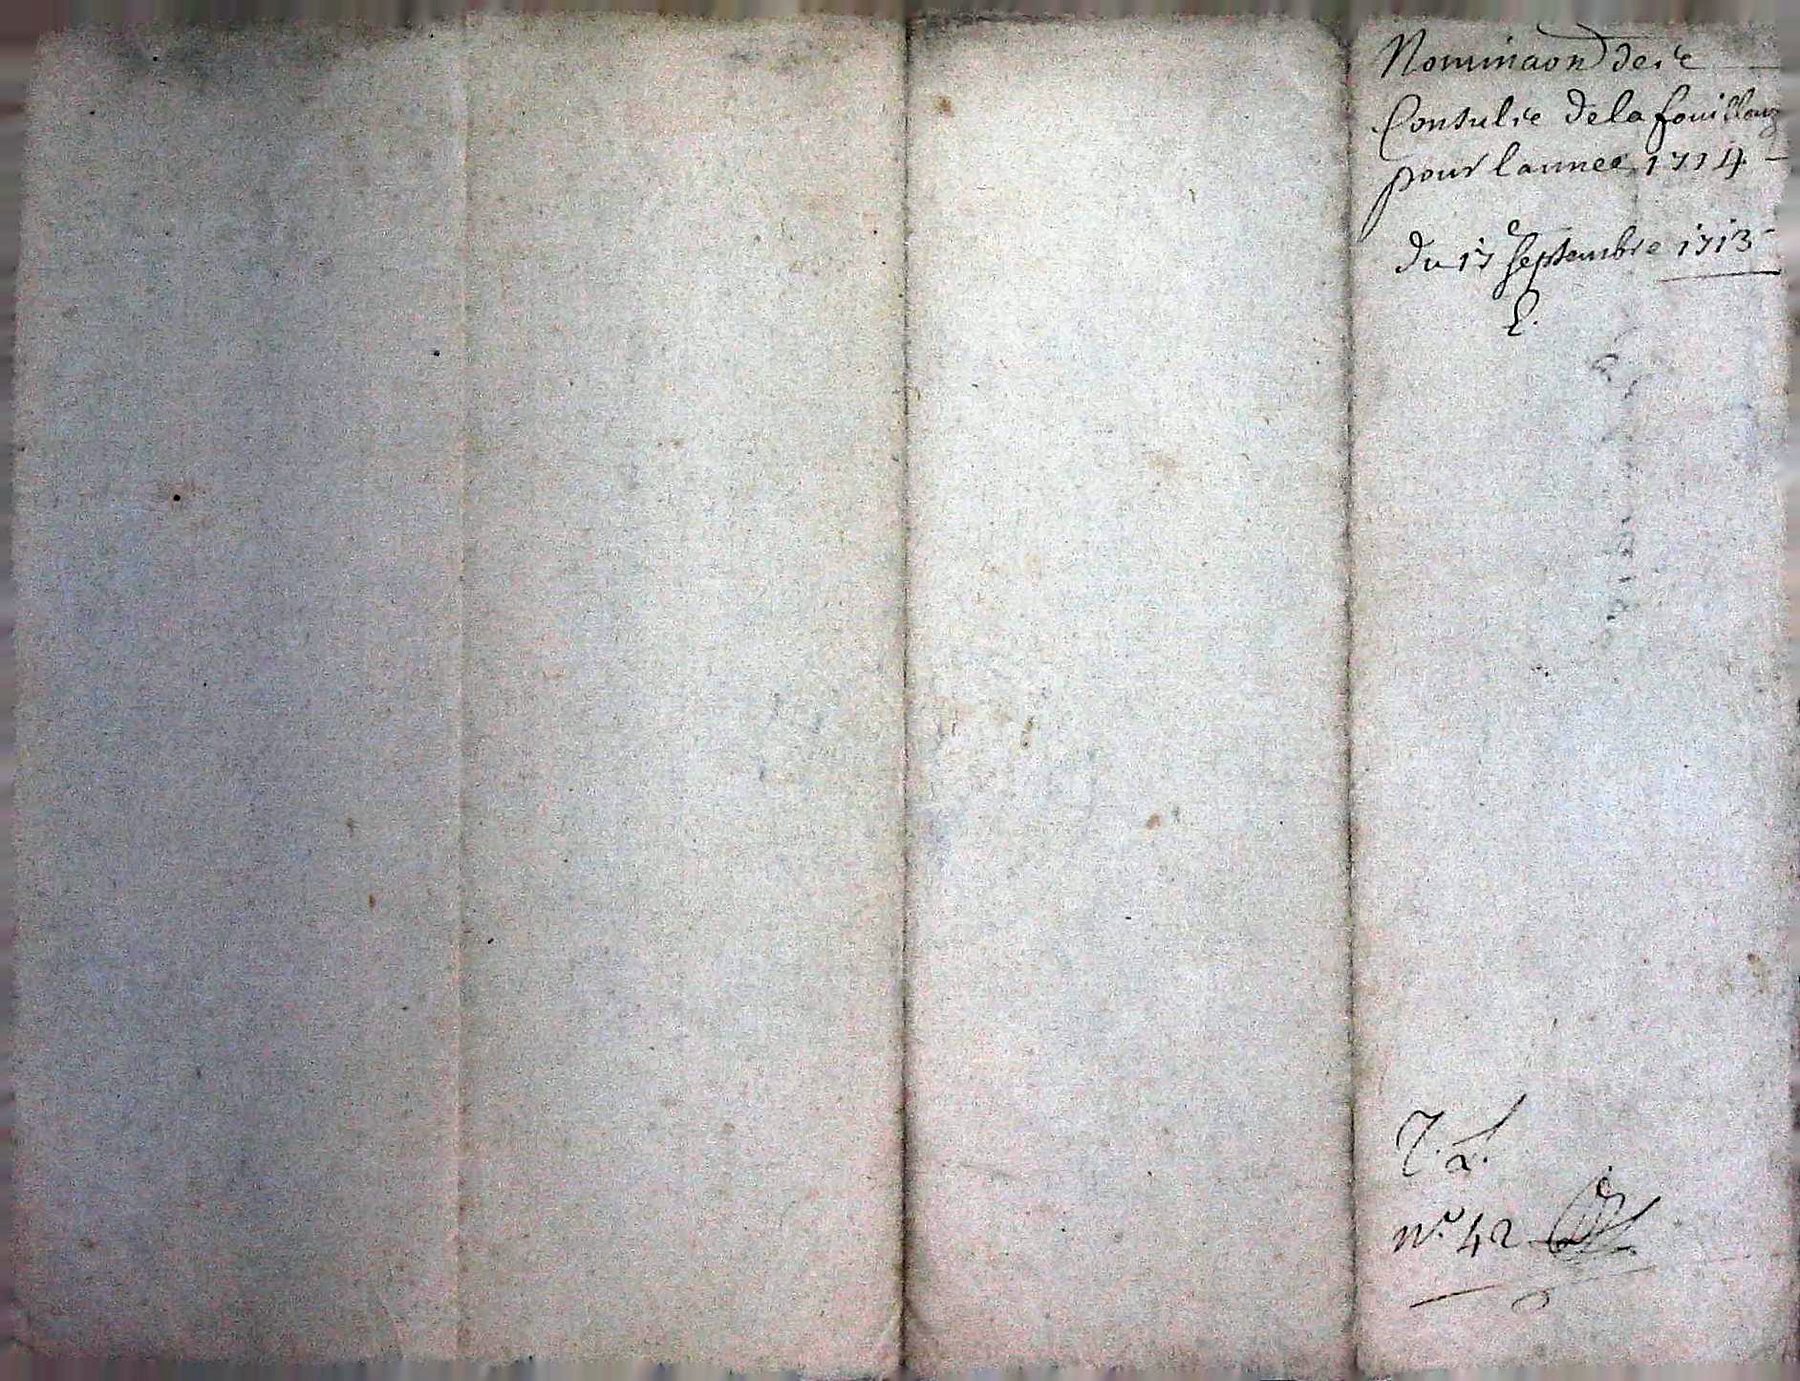 Nominaon de
Consulz de la fouillouz
pour l'annee 1714
du 17e septembre 1713
E.
C. L.
n.° 42